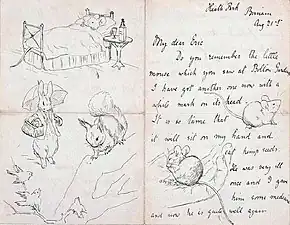 Heath Park Birnam
Aug 21st
My dear Eric
Do you remember the little
mouse which you saw at Bolton Gardens
I have got another one now with a
white mark on its head
It is so tame that
it will sit on my hand and
eat hemp seeds.
He was very ill
once and I gave
him some medicine
and now he is quite well again